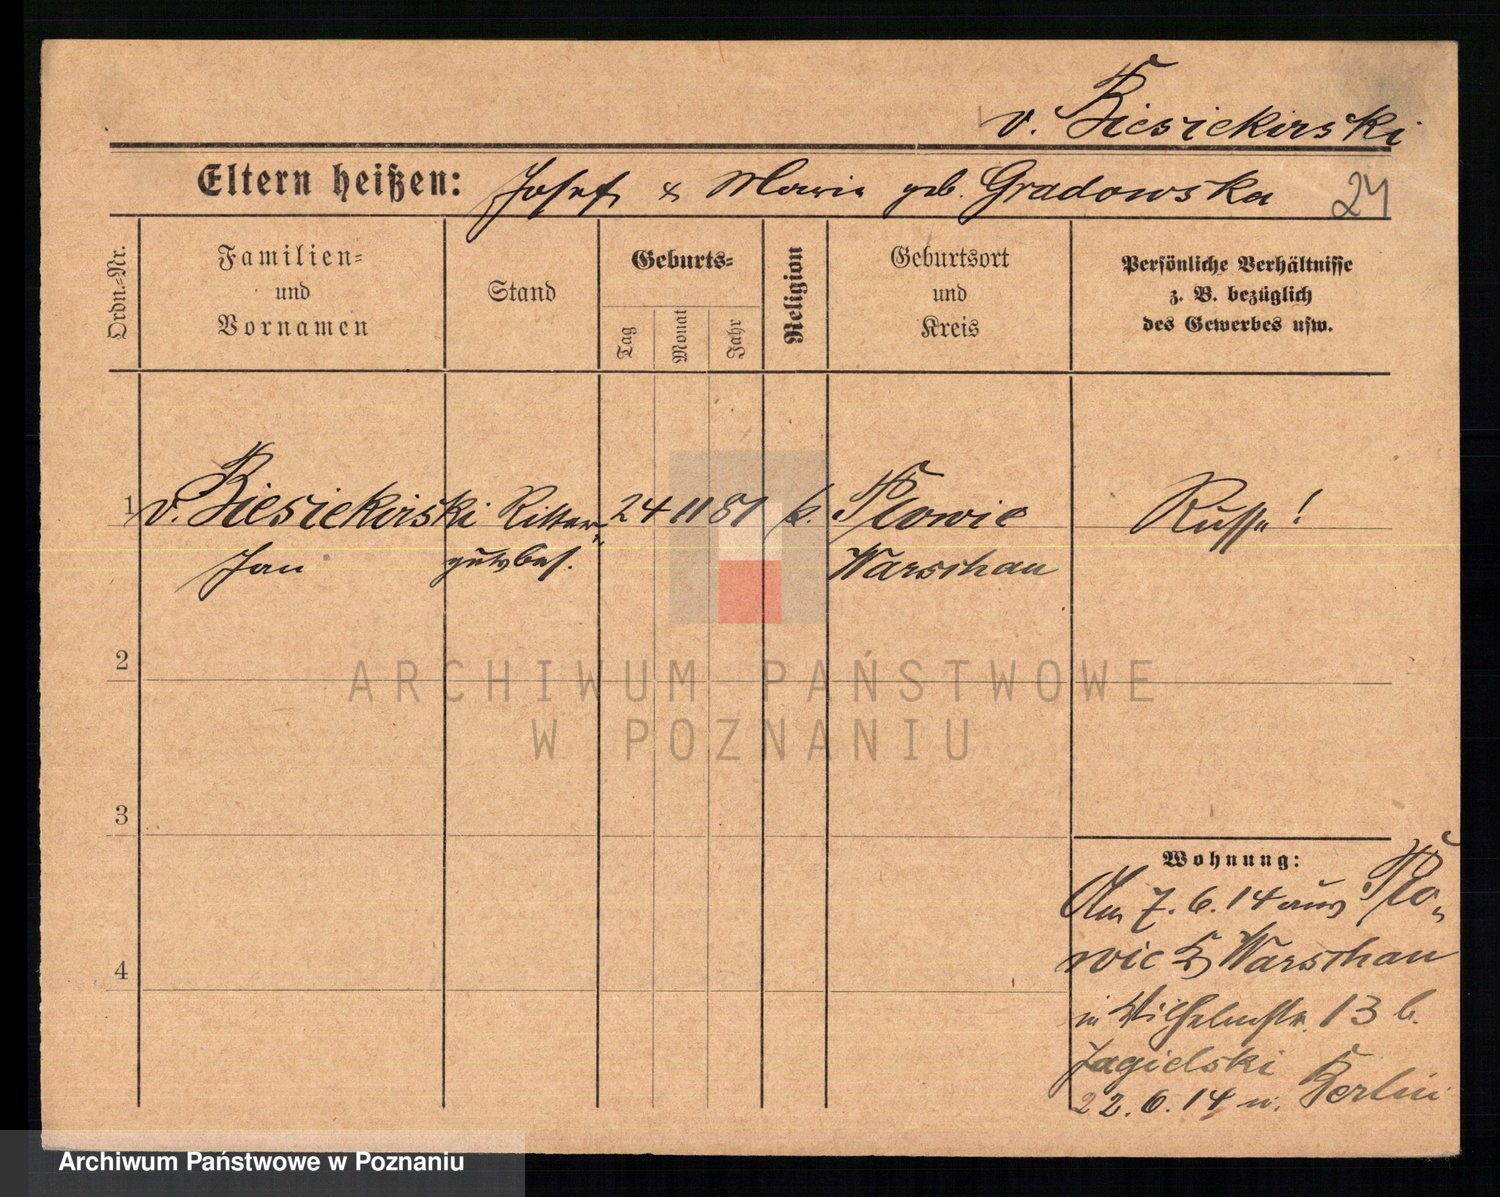 v. Biesiekirski
Eltern heißen: Josef & Marie geb. Gradowska 24
Ordn.-Nr.
Familien-
und
Vornamen
Stand
Geburts-
Tag
Monat
Jahr
Religion
Geburtsort
und
Kreis
Persönliche Verhältnisse
z. B. bezüglich
des Gewerbes usw.
1 v. Biesiekirski Ritter- 24 11 81 k. Plowic Russe!
Jan gutsbes. Warschau
2
ARCHIWUM PAŃSTWOWE
W POZNANIU
3
Wohnung:
Am 7. 6. 14 aus Plo-
4
wic Kr Warschau
in Wilhelmstr. 13 b.
Jagielski
22. 6. 14 n. Berlin
Archiwum Państwowe w Poznaniu